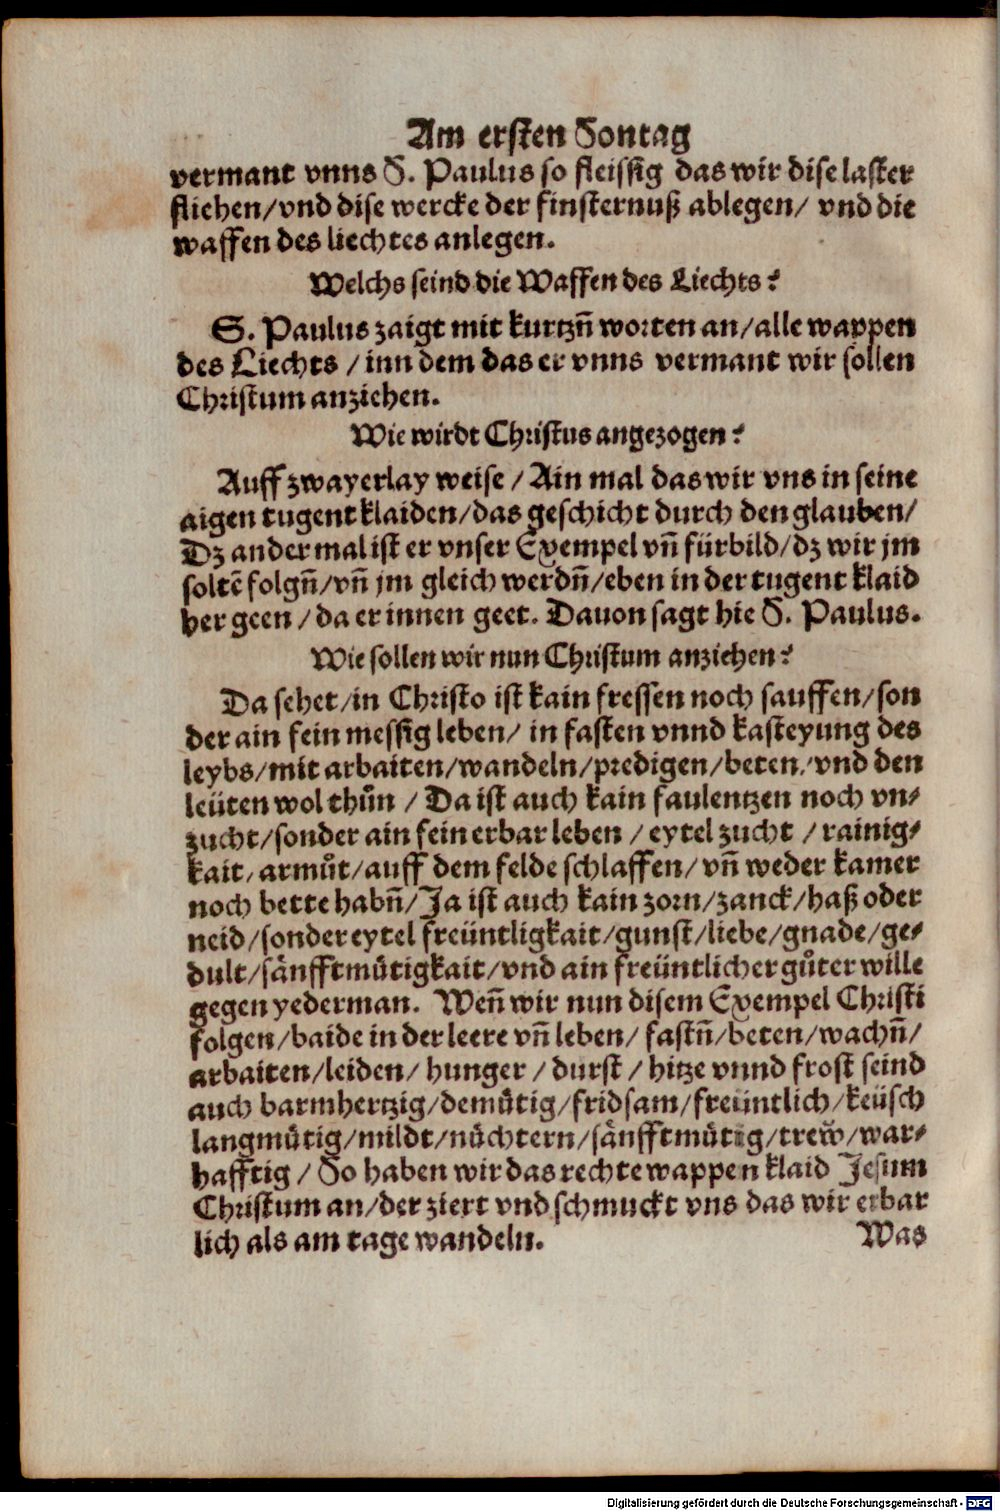 Am ersten Sontag
vermant vnns S. Paulus so fleissig das wir dise laster
fliehen/vnd dise wercke der finsternuß ablegen/ vnd die
waffen des liechtes anlegen.
Welchs seind die Waffen des Liechts?
S. Paulus zaigt mit kurtzn̄ worten an/alle wappen
des Liechts /inn dem das er vnns vermant wir sollen
Christum anziehen.
Wie wirdt Christus angezogen?
Auff zwayerlay weise / Ain mal das wir vns in seine
aigen tugent klaiden/das geschicht durch den glauben/
Dz ander mal ist er vnser Exempel vn̄ fürbild/dz wir jm
soltē folgn̄/vn̄ jm gleich werdn̄/eben in der tugent klaid
her geen /da er innen geet. Dauon sagt hie S. Paulus.
Wie sollen wir nun Christum anziehen?
Da sehet/in Christo ist kain fressen noch sauffen/son
der ain fein messig leben/ in fasten vnnd kasteyung des
leybs/mit arbaiten/wandeln/predigen/beten/vnd den
leüten wol thůn / Da ist auch kain faulentzen noch vn⸗
zucht/sonder ain fein erbar leben /eytel zucht /rainig⸗
kait/armůt/auff dem felde schlaffen/vn̄ weder kamer
noch bette habn̄/Ja ist auch kain zorn/zanck/haß oder
neid/sonder eytel freüntligkait/gunst/liebe/gnade/ge⸗
dult/sänfftmůtigkait/vnd ain freüntlicher gůter wille
gegen yederman. Wen̄ wir nun disem Exempel Christi
folgen/baide in der leere vn̄ leben/ fastn̄/beten/wachn̄/
arbaiten/leiden/ hunger /durst /hitze vnnd frost seind
auch barmhertzig/demůtig/fridsam/freüntlich/keüsch
langmůtig/mildt/nůchtern/sänfftmůtig/trew̃/war⸗
hafftig / So haben wir das rechte wappen klaid Jesum
Christum an/der ziert vnd schmuckt vns das wir erbar
lich als am tage wandeln.
Was
Digitalisierung gefördert durch die Deutsche Forschungsgemeinschaft - DFG